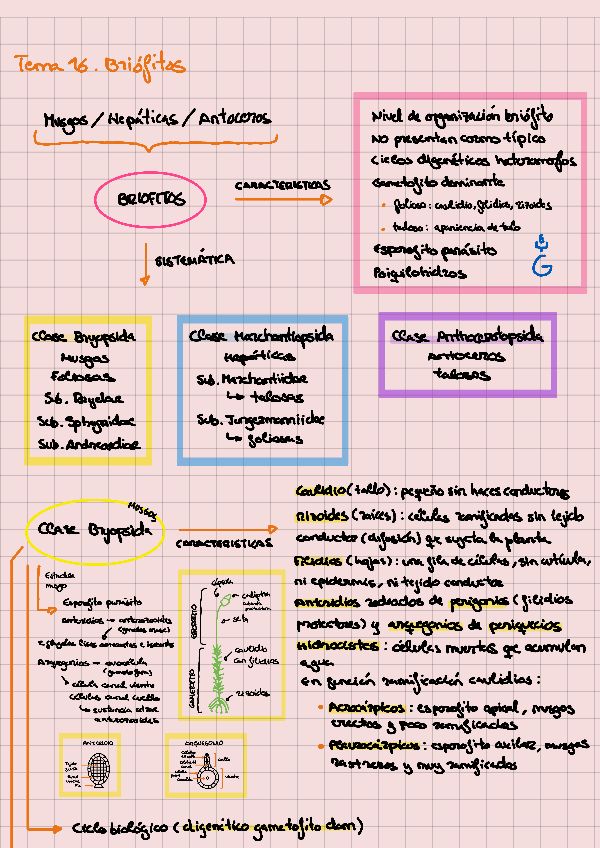 Tema 16. Briófitos
Musgos / Hepáticas / Antoceros
BRIOFITOS
CARACTERISTICAS
SISTEMÁTICA
Nivel de organización briófito
No presentan cormo típico
Ciclos digenéticos heteromorfos
Gametofito dominante
• folioso: caulidio, filidios, rizoides
• taloso: apariencia de talo
Esporofito parásito
Poiquilohidros
G
Clase Bryopsida
Musgos
Foliosas
Sub. Bryidae
Sub. Sphagnidae
Sub. Andreaeidae
Clase Marchantiopsida
Hepáticas
Sub. Marchantiidae
↳ talosas
Sub. Jungermanniidae
↳ foliosas
Clase Anthocerotopsida
antoceros
talosas
Clase Bryopsida
MUSGOS
CARACTERISTICAS
Caulidio (tallo): pequeño sin haces conductores
Rizoides (raíces): células ramificadas sin tejido
conductor (difusión) que sujeta la planta
Filidios (hojas): una fila de células, sin cutícula,
ni epidermis, ni tejido conductor
Anteridios rodeados de perigonios (filidios
protectores) y arquegonios de periquecios
Hidrocistes: células muertas que acumulan
agua
En función ramificación caulidios:
• Acrocárpicos: esporofito apical, musgos
erectos y poco ramificados
• Pleurocárpicos: esporofito axilar, musgos
rastreros y muy ramificados
musgo
Esporofito parásito
anteridios → anterozoides
(gametos masc)
Arquegonios → ovocélula
(gameto fem)
↳ células canal vientre
células canal cuello
↳ sustancia atrae
anterozoides
cápsula
caliptra
seta
caulidio
con filidios
rizoides
ESPOROFITO
GAMETOFITO
ANTERIDIO
ARQUEGONIO
cuello
vientre
Ciclo biológico (digenético gametofito dom)